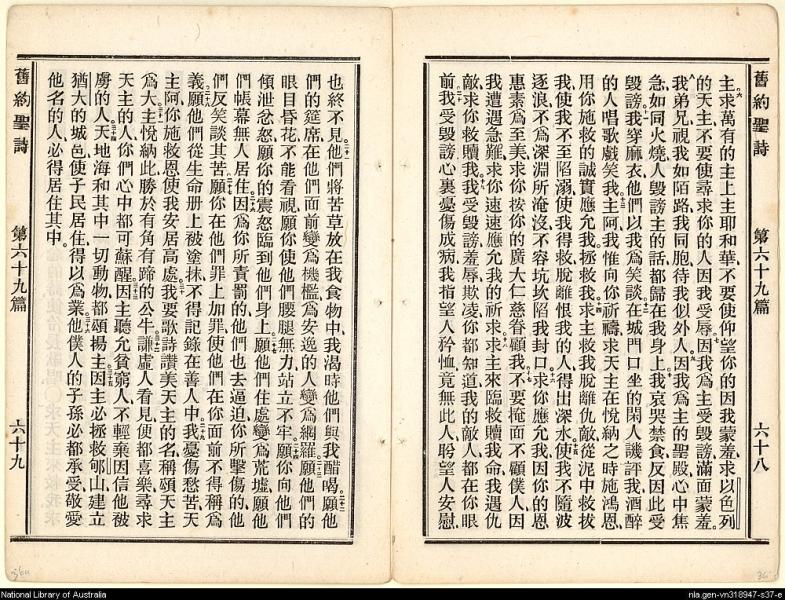 舊約聖詩 第六十九篇 六十八
主求萬有的主上主耶和華不要使仰望你的因我蒙羞求以色列
的天主不要使尋求你的人因我受辱因我爲主受毀謗滿面蒙羞
我弟兄視我如陌路我同胞待我似外人因我爲主的聖殿心中焦
急如同火燒人毀謗主的話都歸在我身上我哀哭禁食反因此受
毀謗我穿麻衣他們以我爲笑談在城門口坐的閑人譏評我酒醉
的人唱歌戲笑我主阿我惟向你祈禱求天主在悅納之時施鴻恩
用你施救的誠實應允我拯救我求主救我脫離仇敵從泥中救拔
我使我不至陷溺使我得救脫離恨我的人得出深水使我不隨波
逐浪不爲深淵所淹沒不容坑坎陷我封口求你應允我因你的恩
惠素爲至美求你按你的廣大仁慈眷顧我不要掩面不顧僕人因
我遭遇急難求你速速應允我的祈求求主來臨救贖我命我遇仇
敵求你救贖我我受毀謗羞辱欺凌你都知道我的敵人都在你眼
前我受毀謗心裏憂傷成病我指望人矜恤竟無此人盼望人安慰
也終不見他們將苦草放在我食物中我渴時他們與我醋喝願他
們的筵席在他們面前變爲機檻爲安逸的人變爲網羅願他們的
眼目昏花不能看視願你使他們腰腿無力站立不牢願你向他們
傾泄忿怒願你的震怒臨到他們身上願他們住處變爲荒墟願他
們帳幕無人居住因爲你所責罰的他們也去逼迫你所擊傷的他
們反笑談其苦願你在他們罪上加罪使他們在你面前不得稱爲
義願他們從生命册上被塗抹不得記錄在善人中我憂傷愁苦天
主阿你施救恩使我安居高處我要歌詩讚美天主的名稱頌天主
爲大主悅納此勝於有角有蹄的公牛謙虛人看見便都喜樂尋求
天主的人你們心中都可蘇醒因主聽允貧窮人不輕棄因信他被
虜的人天地海和其中一切動物都頌揚主因主必拯救郇山建立
猶大的城邑使子民居住得以爲業他僕人的子孫必都承受敬愛
他名的人必得居住其中
舊約聖詩 第六十九篇 六十九
National Library of Australia
nla.gen-vn318947-s37-e